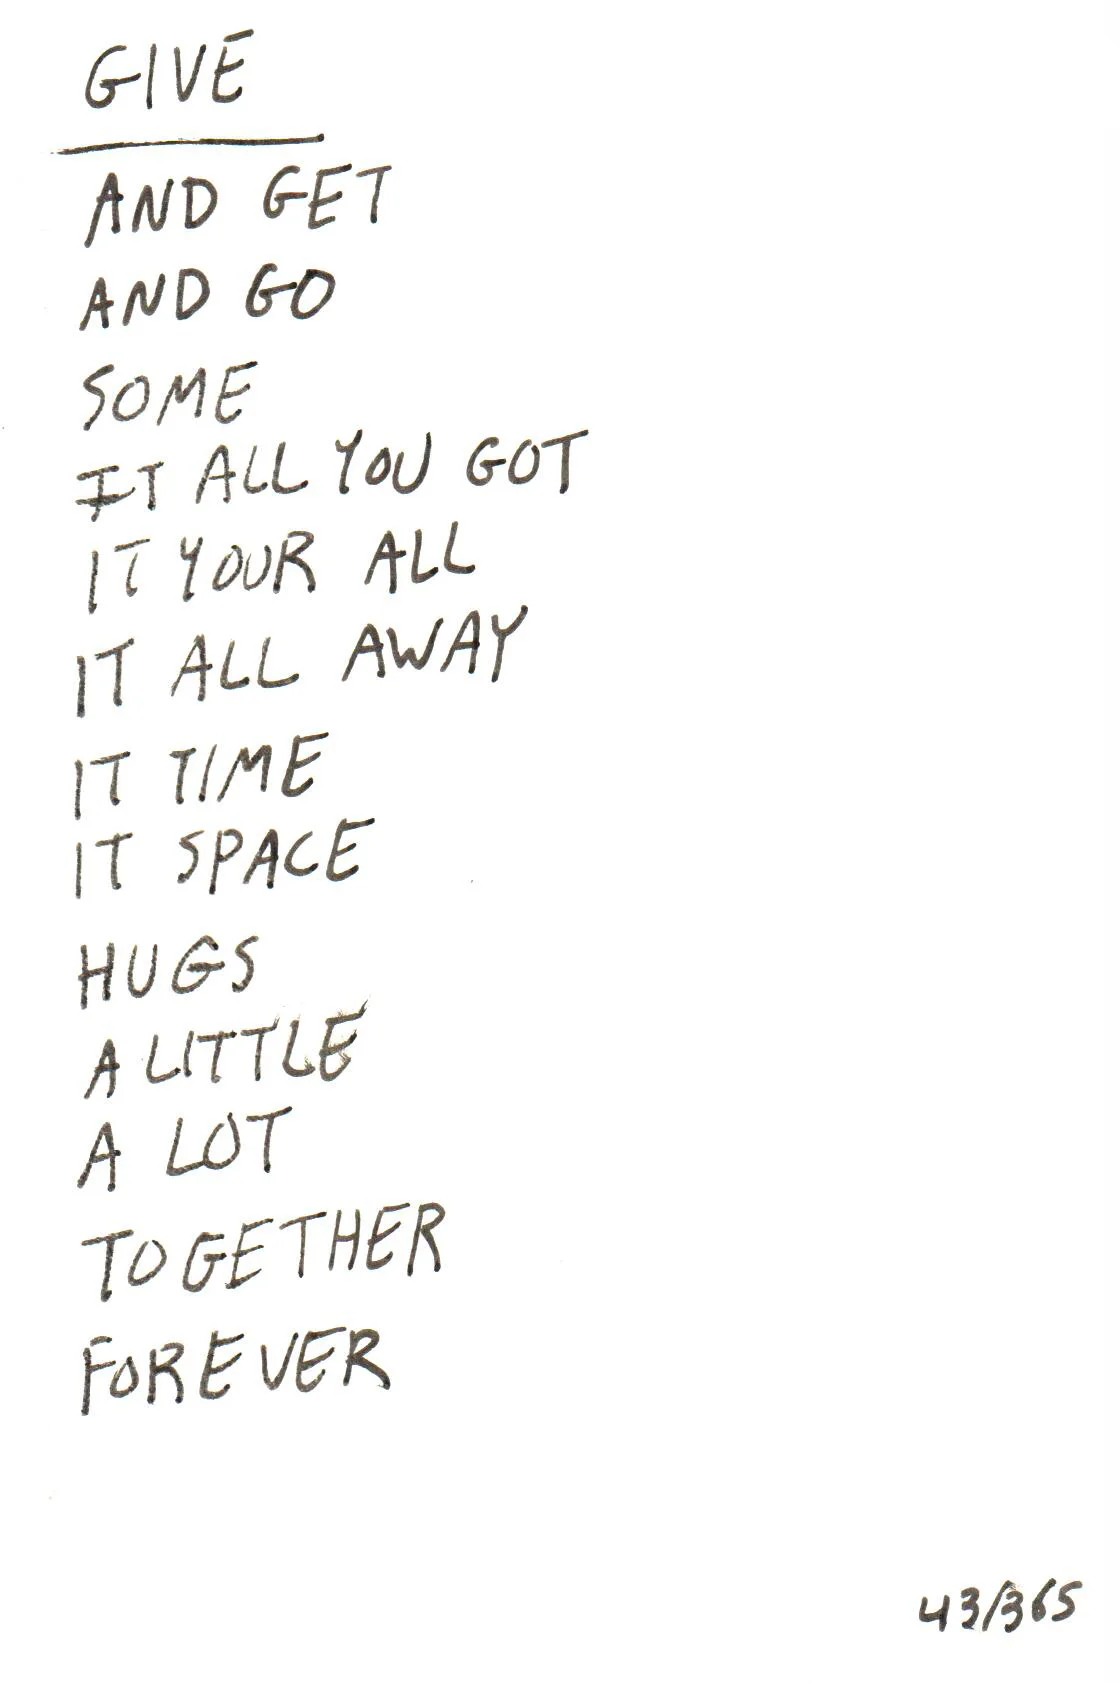 GIVE
AND GET
AND GO
SOME
IT ALL YOU GOT
IT YOUR ALL
IT ALL AWAY
IT TIME
IT SPACE
HUGS
A LITTLE
A LOT
TOGETHER
FOREVER
43/365